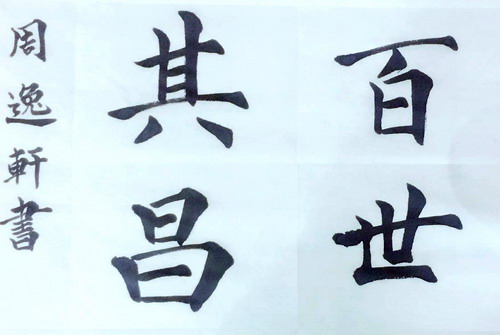 百世
其昌
周逸軒書